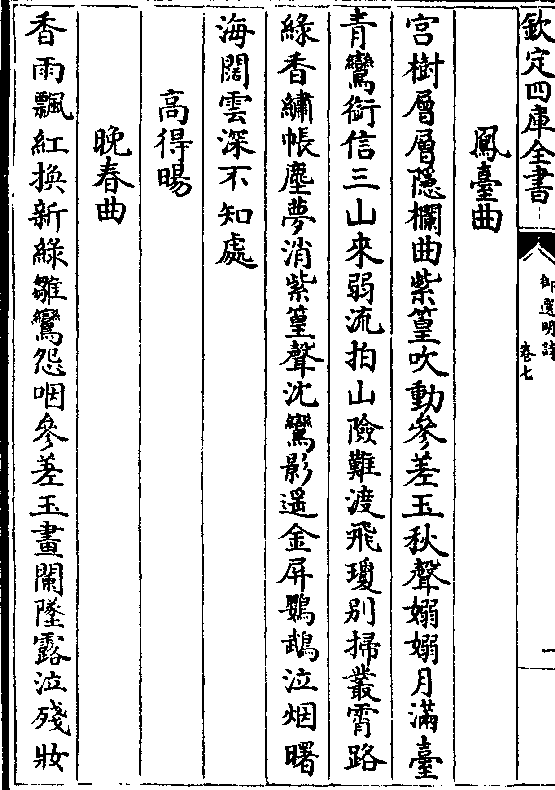 欽定四庫全書
御選明詩
卷七
鳳臺曲
宮樹層層隱欄曲紫篁吹動參差玉秋聲嫋嫋月滿臺
青鸞銜信三山來弱流拍山險難渡飛瓊别掃叢霄路
綠香繡帳塵夢消紫篁聲沈鸞影遥金屏鸚鵡泣烟曙
海闊雲深不知處
高得暘
晩春曲
香雨飄紅換新綠雛鶯怨咽參差玉畫闌墜露泣殘妝